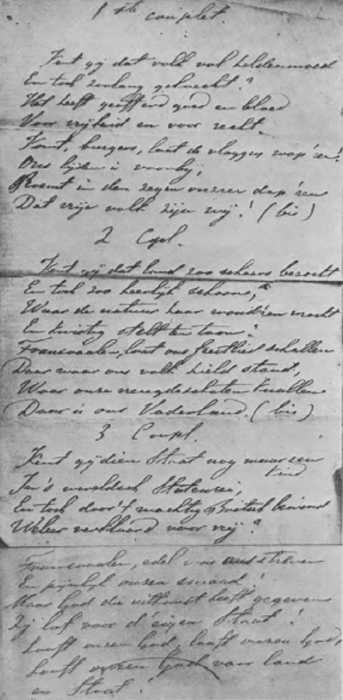 1ste couplet.
Kent gij dat volk vol heldenmoed
En toch zoolang geknecht?
Het heeft geofferd goed en bloed
Voor vrijheid en voor recht.
Komt, burgers, laat de vlaggen wapp'ren!
Ons lijden is voorbij,
Roemt in den zegen onzer dapp'ren
Dat vrije volk zijn wij! (bis)
2 Cpl.
Kent gij dat land zoo schaars bezocht
En toch zoo heerlijk schoon,
Waar de natuur haar wond'ren wrocht
En kwistig stelt ten toon?
Transvaalen, laat ons feestlied schallen
Daar waar ons volk hield stand,
Waar onze vreugdeschoten knallen
Daar is ons Vaderland. (bis)
3 Coupl.
Kent gij dien Staat nog maar een
kind
In 's werelds Statenrei,
En toch door 't machtig Britsch bewind
Weleer verklaard voor vrij?
Transvaalen, edel was streven
En pijnlijk onzen smaad!
Maar God die uitkomst heeft gegeven
Zij lof voor d' eigen Staat!
Looft onzen God, looft onzen God,
Looft onzen God voor land
en Staat!